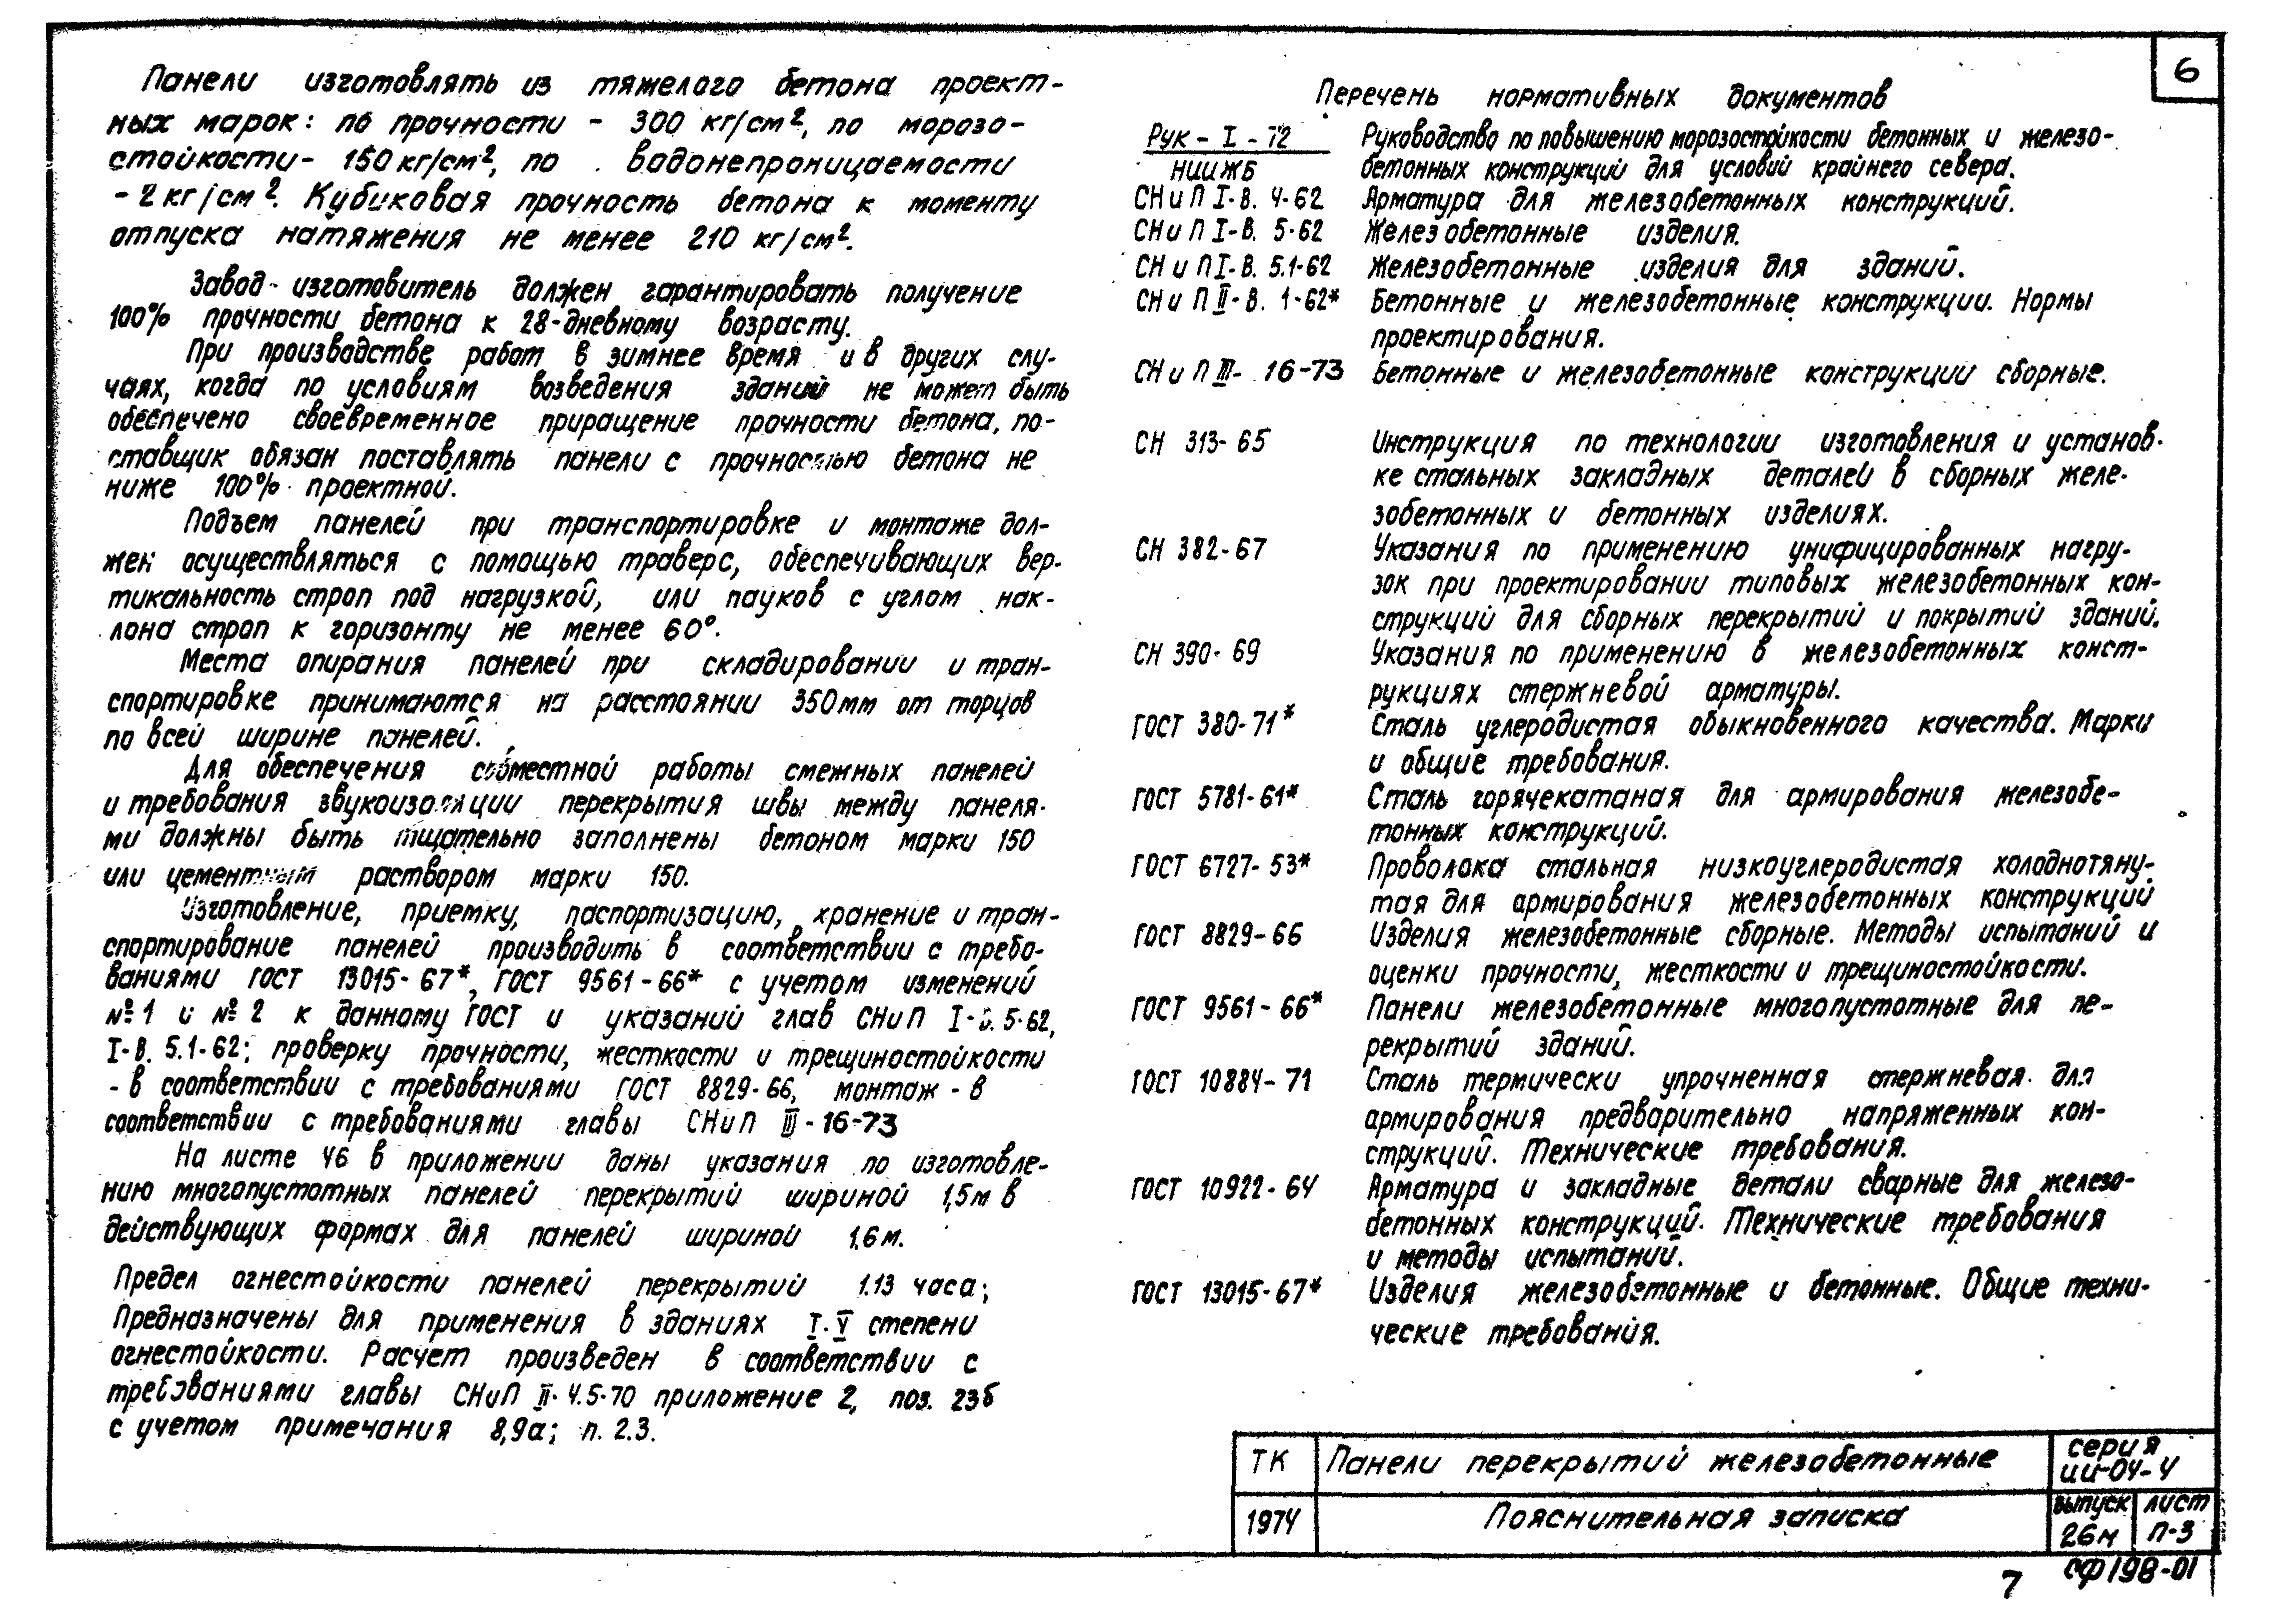 6
Панели изготовлять из тяжелого бетона проект-
ных марок: по прочности - 300 кг/см², по морозо-
стойкости - 150 кг/см², по водонепроницаемости
- 2 кг/см². Кубиковая прочность бетона к моменту
отпуска натяжения не менее 210 кг/см².
Завод-изготовитель должен гарантировать получение
100% прочности бетона к 28-дневному возрасту.
При производстве работ в зимнее время и в других слу-
чаях, когда по условиям возведения зданий не может быть
обеспечено своевременное приращение прочности бетона, по-
ставщик обязан поставлять панели с прочностью бетона не
ниже 100% проектной.
Подъем панелей при транспортировке и монтаже дол-
жен осуществляться с помощью траверс, обеспечивающих вер-
тикальность строп под нагрузкой, или пауков с углом нак-
лона строп к горизонту не менее 60°.
Места опирания панелей при складировании и тран-
спортировке принимаются на расстоянии 350мм от торцов
по всей ширине панелей.
Для обеспечения совместной работы смежных панелей
и требования звукоизоляции перекрытия швы между панеля-
ми должны быть тщательно заполнены бетоном марки 150
или цементным раствором марки 150.
Изготовление, приемку, паспортизацию, хранение и тран-
спортирование панелей производить в соответствии с требо-
ваниями ГОСТ 13015-67*, ГОСТ 9561-66* с учетом изменений
№1 и №2 к данному ГОСТ и указаний глав СНиП I-В. 5-62,
I-В. 5.1-62; проверку прочности, жесткости и трещиностойкости
- в соответствии с требованиями ГОСТ 8829-66, монтаж - в
соответствии с требованиями главы СНиП III-16-73
На листе 46 в приложении даны указания по изготовле-
нию многопустотных панелей перекрытий шириной 1,5м в
действующих формах для панелей шириной 1.6м.
Предел огнестойкости панелей перекрытий 1.13 часа;
Предназначены для применения в зданиях I-V степени
огнестойкости. Расчет произведен в соответствии с
требованиями главы СНиП II-4.5-70 приложение 2, поз. 23б
с учетом примечания 8,9а; п. 2.3.
Перечень нормативных документов
Рук-I-72 Руководство по повышению морозостойкости бетонных и железо-
НИИЖБ бетонных конструкций для условий крайнего севера.
СНиП I-В. 4-62 Арматура для железобетонных конструкций.
СНиП I-В. 5-62 Железобетонные изделия.
СНиП I-В. 5.1-62 Железобетонные изделия для зданий.
СНиП II-В. 1-62* Бетонные и железобетонные конструкции. Нормы
проектирования.
СНиП III-16-73 Бетонные и железобетонные конструкции сборные.
СН 313-65 Инструкция по технологии изготовления и установ-
ке стальных закладных деталей в сборных желе-
зобетонных и бетонных изделиях.
СН 382-67 Указания по применению унифицированных нагру-
зок при проектировании типовых железобетонных кон-
струкций для сборных перекрытий и покрытий зданий.
СН 390-69 Указания по применению в железобетонных конст-
рукциях стержневой арматуры.
ГОСТ 380-71* Сталь углеродистая обыкновенного качества. Марки
и общие требования.
ГОСТ 5781-61* Сталь горячекатаная для армирования железобе-
тонных конструкций.
ГОСТ 6727-53* Проволока стальная низкоуглеродистая холоднотяну-
тая для армирования железобетонных конструкций
ГОСТ 8829-66 Изделия железобетонные сборные. Методы испытаний и
оценки прочности, жесткости и трещиностойкости.
ГОСТ 9561-66* Панели железобетонные многопустотные для пе-
рекрытий зданий.
ГОСТ 10884-71 Сталь термически упрочненная стержневая для
армирования предварительно напряженных кон-
струкций. Технические требования.
ГОСТ 10922-64 Арматура и закладные детали сварные для железо-
бетонных конструкций. Технические требования
и методы испытаний.
ГОСТ 13015-67* Изделия железобетонные и бетонные. Общие техни-
ческие требования.
ТК Панели перекрытий железобетонные серия
ИИ-04-4
1974 Пояснительная записка выпуск лист
26м П-3
7 СФ198-01